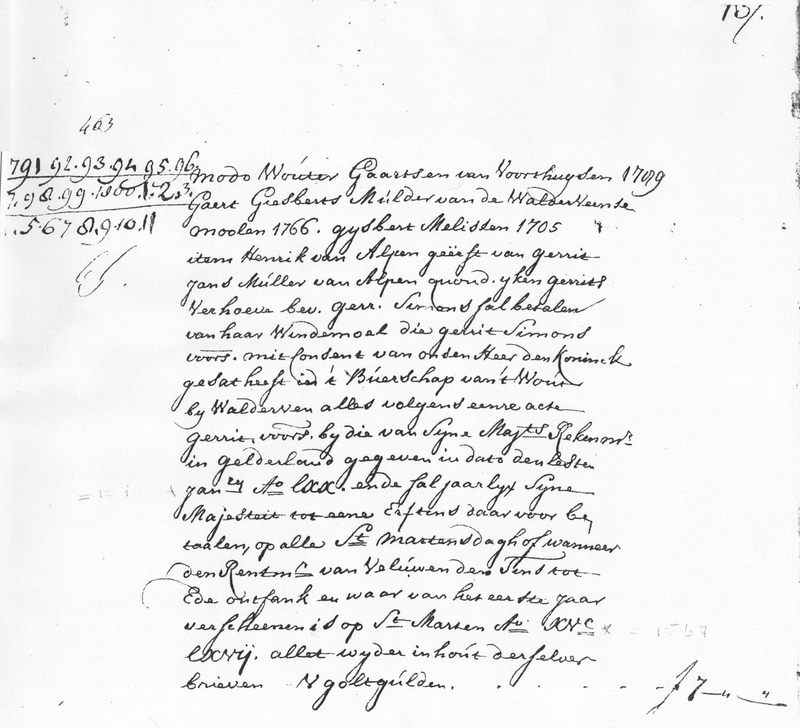 107.
463
791 92. 93. 94 95. 96
7. 98. 99. 1800. 1. 2. 3.
. 5. 6 7 8. 9. 10. 11
modo Wouter Gaartsen van Voorthuysen 1709
Gaert Giesberts Mulder van de Walderveense
moolen 1766. gysbert Melissen 1705
item Henrik van Alpen geërft van gerrit
jans Müller van Alpen quond. yken gerrits
Verhoeve bev. gerr. Simons sal betalen
van haar Windemoel die gerrit Simons
voors. mit Consent van onsen Heer den Koninck
gesat heeft in 't Buerschap van 't Wout
by Walderven alles volgens eenre acte
gerrit voors. by die van Syne Majts Rekenmrs
in gelderland gegeven in dato den lesten
janry Ao lXX. ende sal jaarlyx Syne
Majesteit tot eene Erftins daar voor be
taalen, op alle St martensdagh of wanneer
den Rentmr van Veluwen den Tins tot
Ede ontfank en waar van het eerste jaar
verscheenen is op St Marten Ao XVc
lXVij. allet wyder inhout derselver
brieven V goltgulden. . . . . . ƒ 7 - „ - „
= 1567